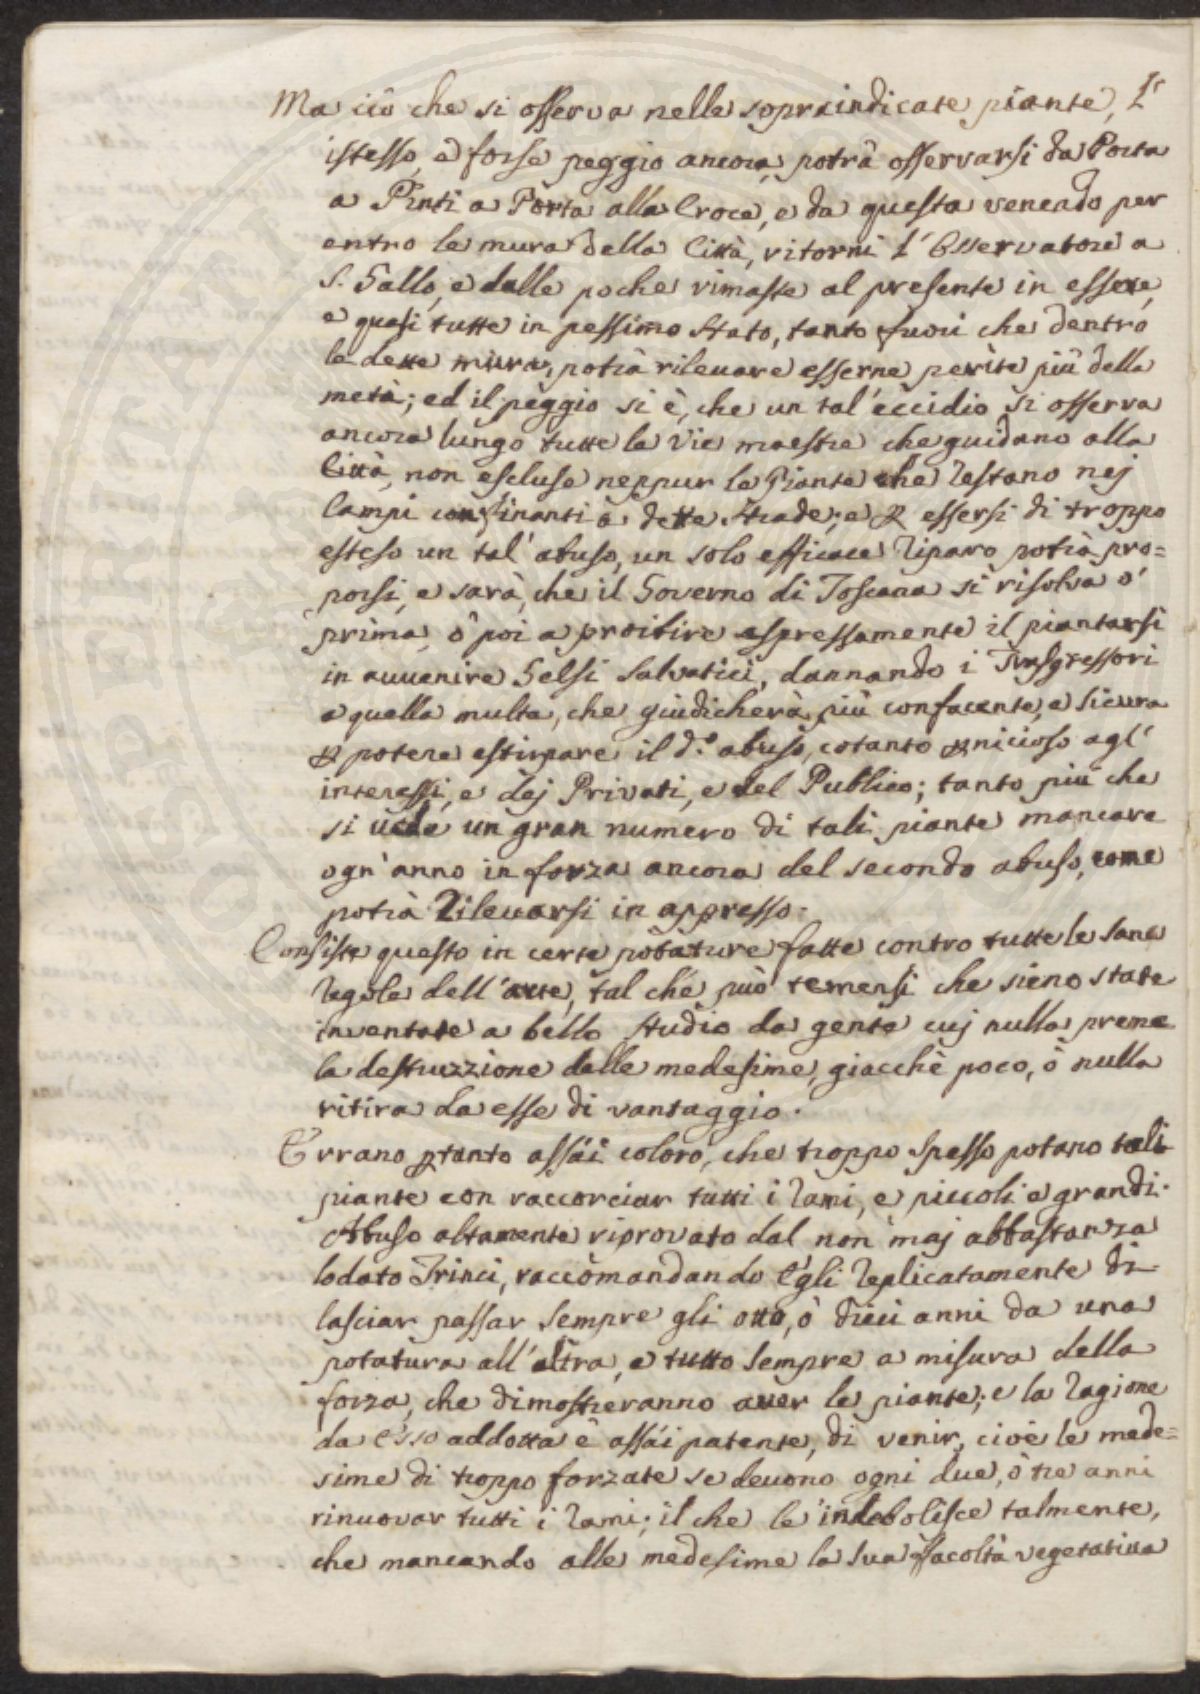 Ma ciò che si osserva nelle sopraindicate piante, l'
istesso, e forse peggio ancora, potrà osservarsi da Porta
a Pinti a Porta alla Croce, e da questa venendo per
entro le mura della Città, ritorni l'Osservatore a
S. Gallo, e dalle poche rimaste al presente in essere,
e quasi tutte in pessimo stato, tanto fuori che dentro
le dette mura, potrà rilevare esserne perite più della
metà; ed il peggio si è, che un tal'eccidio si osserva
ancora lungo tutte le Vie maestre che guidano alla
Città, non escluse neppur le Piante che restano nej
Campi confinanti a dette strade; e ꝑ essersi di troppo
esteso un tal'abuso, un solo efficace riparo potrà pro=
porsi, e sarà, che il Governo di Toscana si risolva ò
prima, ò poi a proibire espressamente il piantarsi
in avvenire Gelsi salvatici, dannando i Trasgressori
a quella multa, che giudicherà più confacente, e sicura
ꝑ potere estirpare il d.º abuso, cotanto ꝑnicioso agl'
interessi, e dej Privati, e del Publico; tanto più che
si vede un gran numero di tali piante mancare
ogn'anno in forza ancora del secondo abuso, come
potrà rilevarsi in appresso.
Consiste questo in certe potature fatte contro tutte le sane
regole dell'arte, tal che può temersi che sieno state
inventate a bello studio da gente cuj nulla preme
la destruzzione delle medesime, giacchè poco, ò nulla
ritira da esse di vantaggio.
Errano ꝑtanto assai coloro, che troppo spesso potano tali
piante con raccorciar tutti i rami, e piccoli e grandi.
Abuso altamente riprovato dal non maj abbastanza
lodato Trinci, raccomandando Egli replicatamente di
lasciar passar sempre gli otto, ò dieci anni da una
potatura all'altra, e tutto sempre a misura della
forza, che dimostreranno aver le piante; e la ragione
da esso addotta è assai patente, di venir, cioè le mede=
sime di troppo forzate se devono ogni due, ò tre anni
rinuovar tutti i rami; il che le indebolisce talmente,
che mancando alle medesime la sua facoltà vegetativa